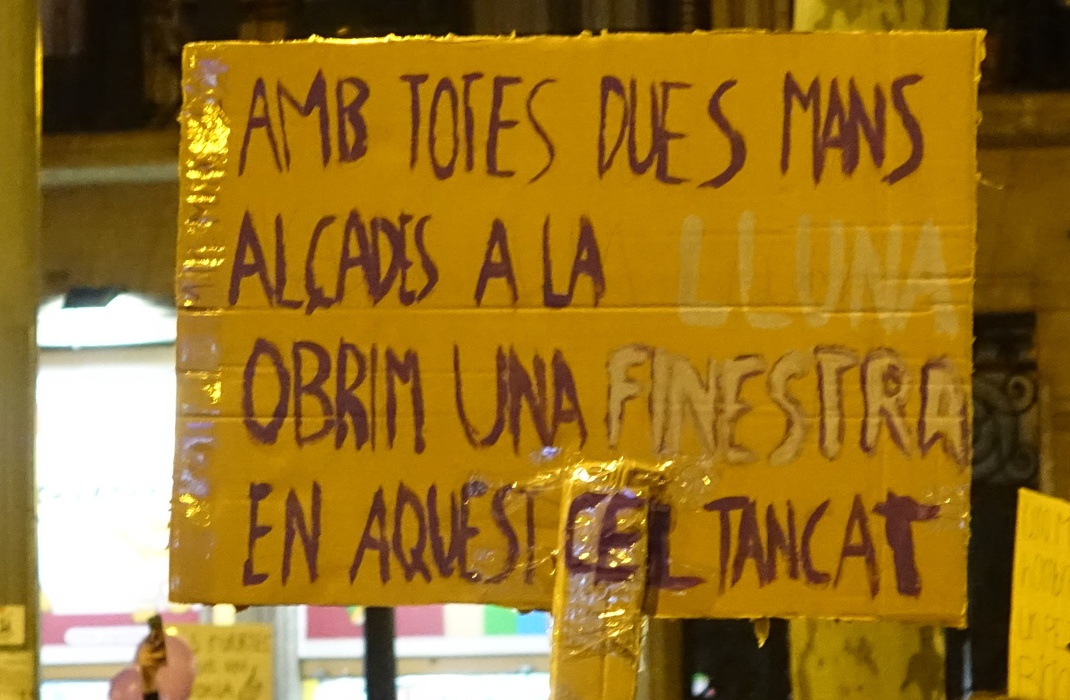 AMB TOTES DUES MANS
ALÇADES A LA LLUNA
OBRIM UNA FINESTRA
EN AQUEST CEL TANCAT